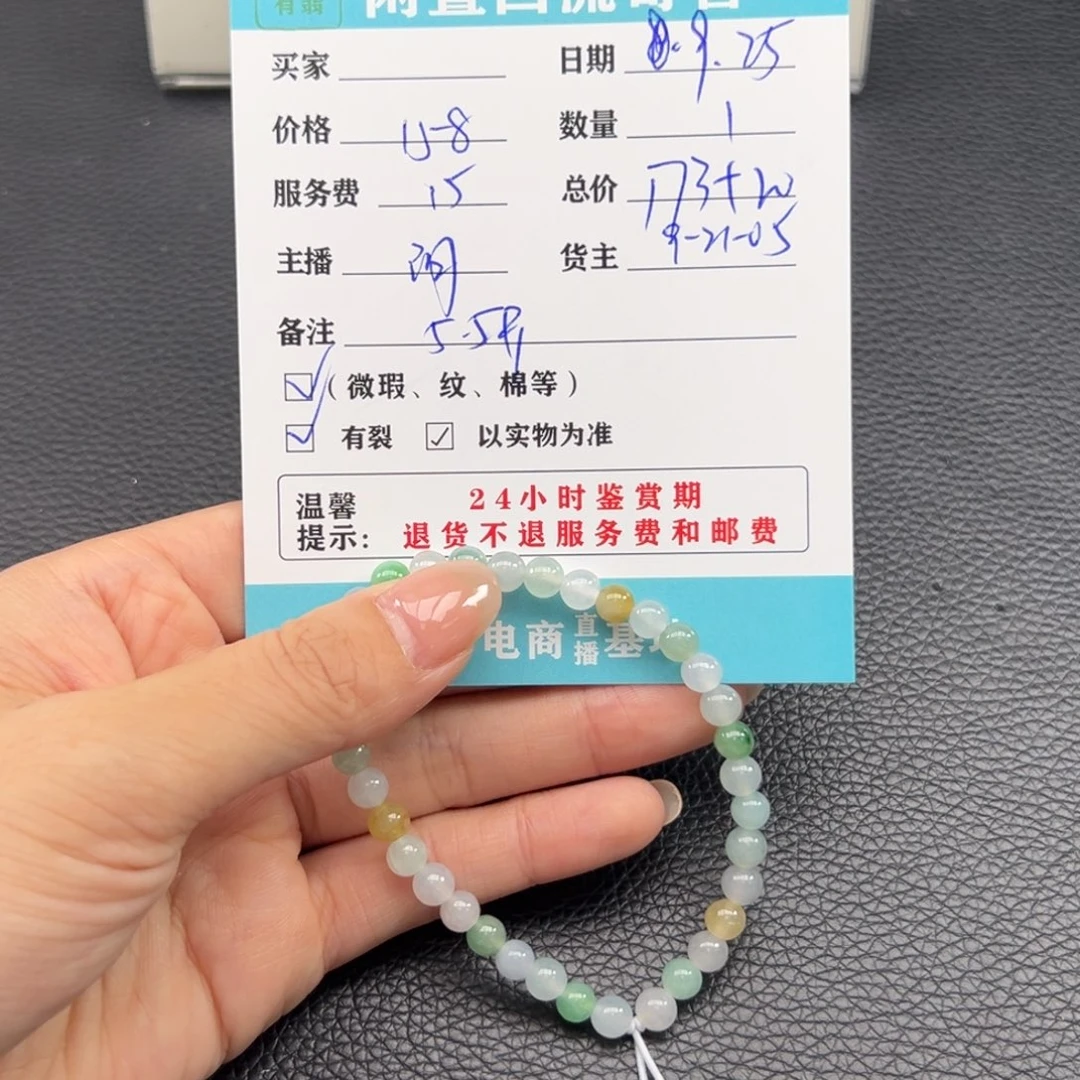 有弱
闲置回流寄售
买家 日期 9.25
价格 数量 1
服务费 15 总价 173+20
9-21-05
主播 货主
备注 5.5
(微瑕、纹、棉等)
有裂 以实物为准
温馨 24小时鉴赏期
提示: 退货不退服务费和邮费
电商直播基